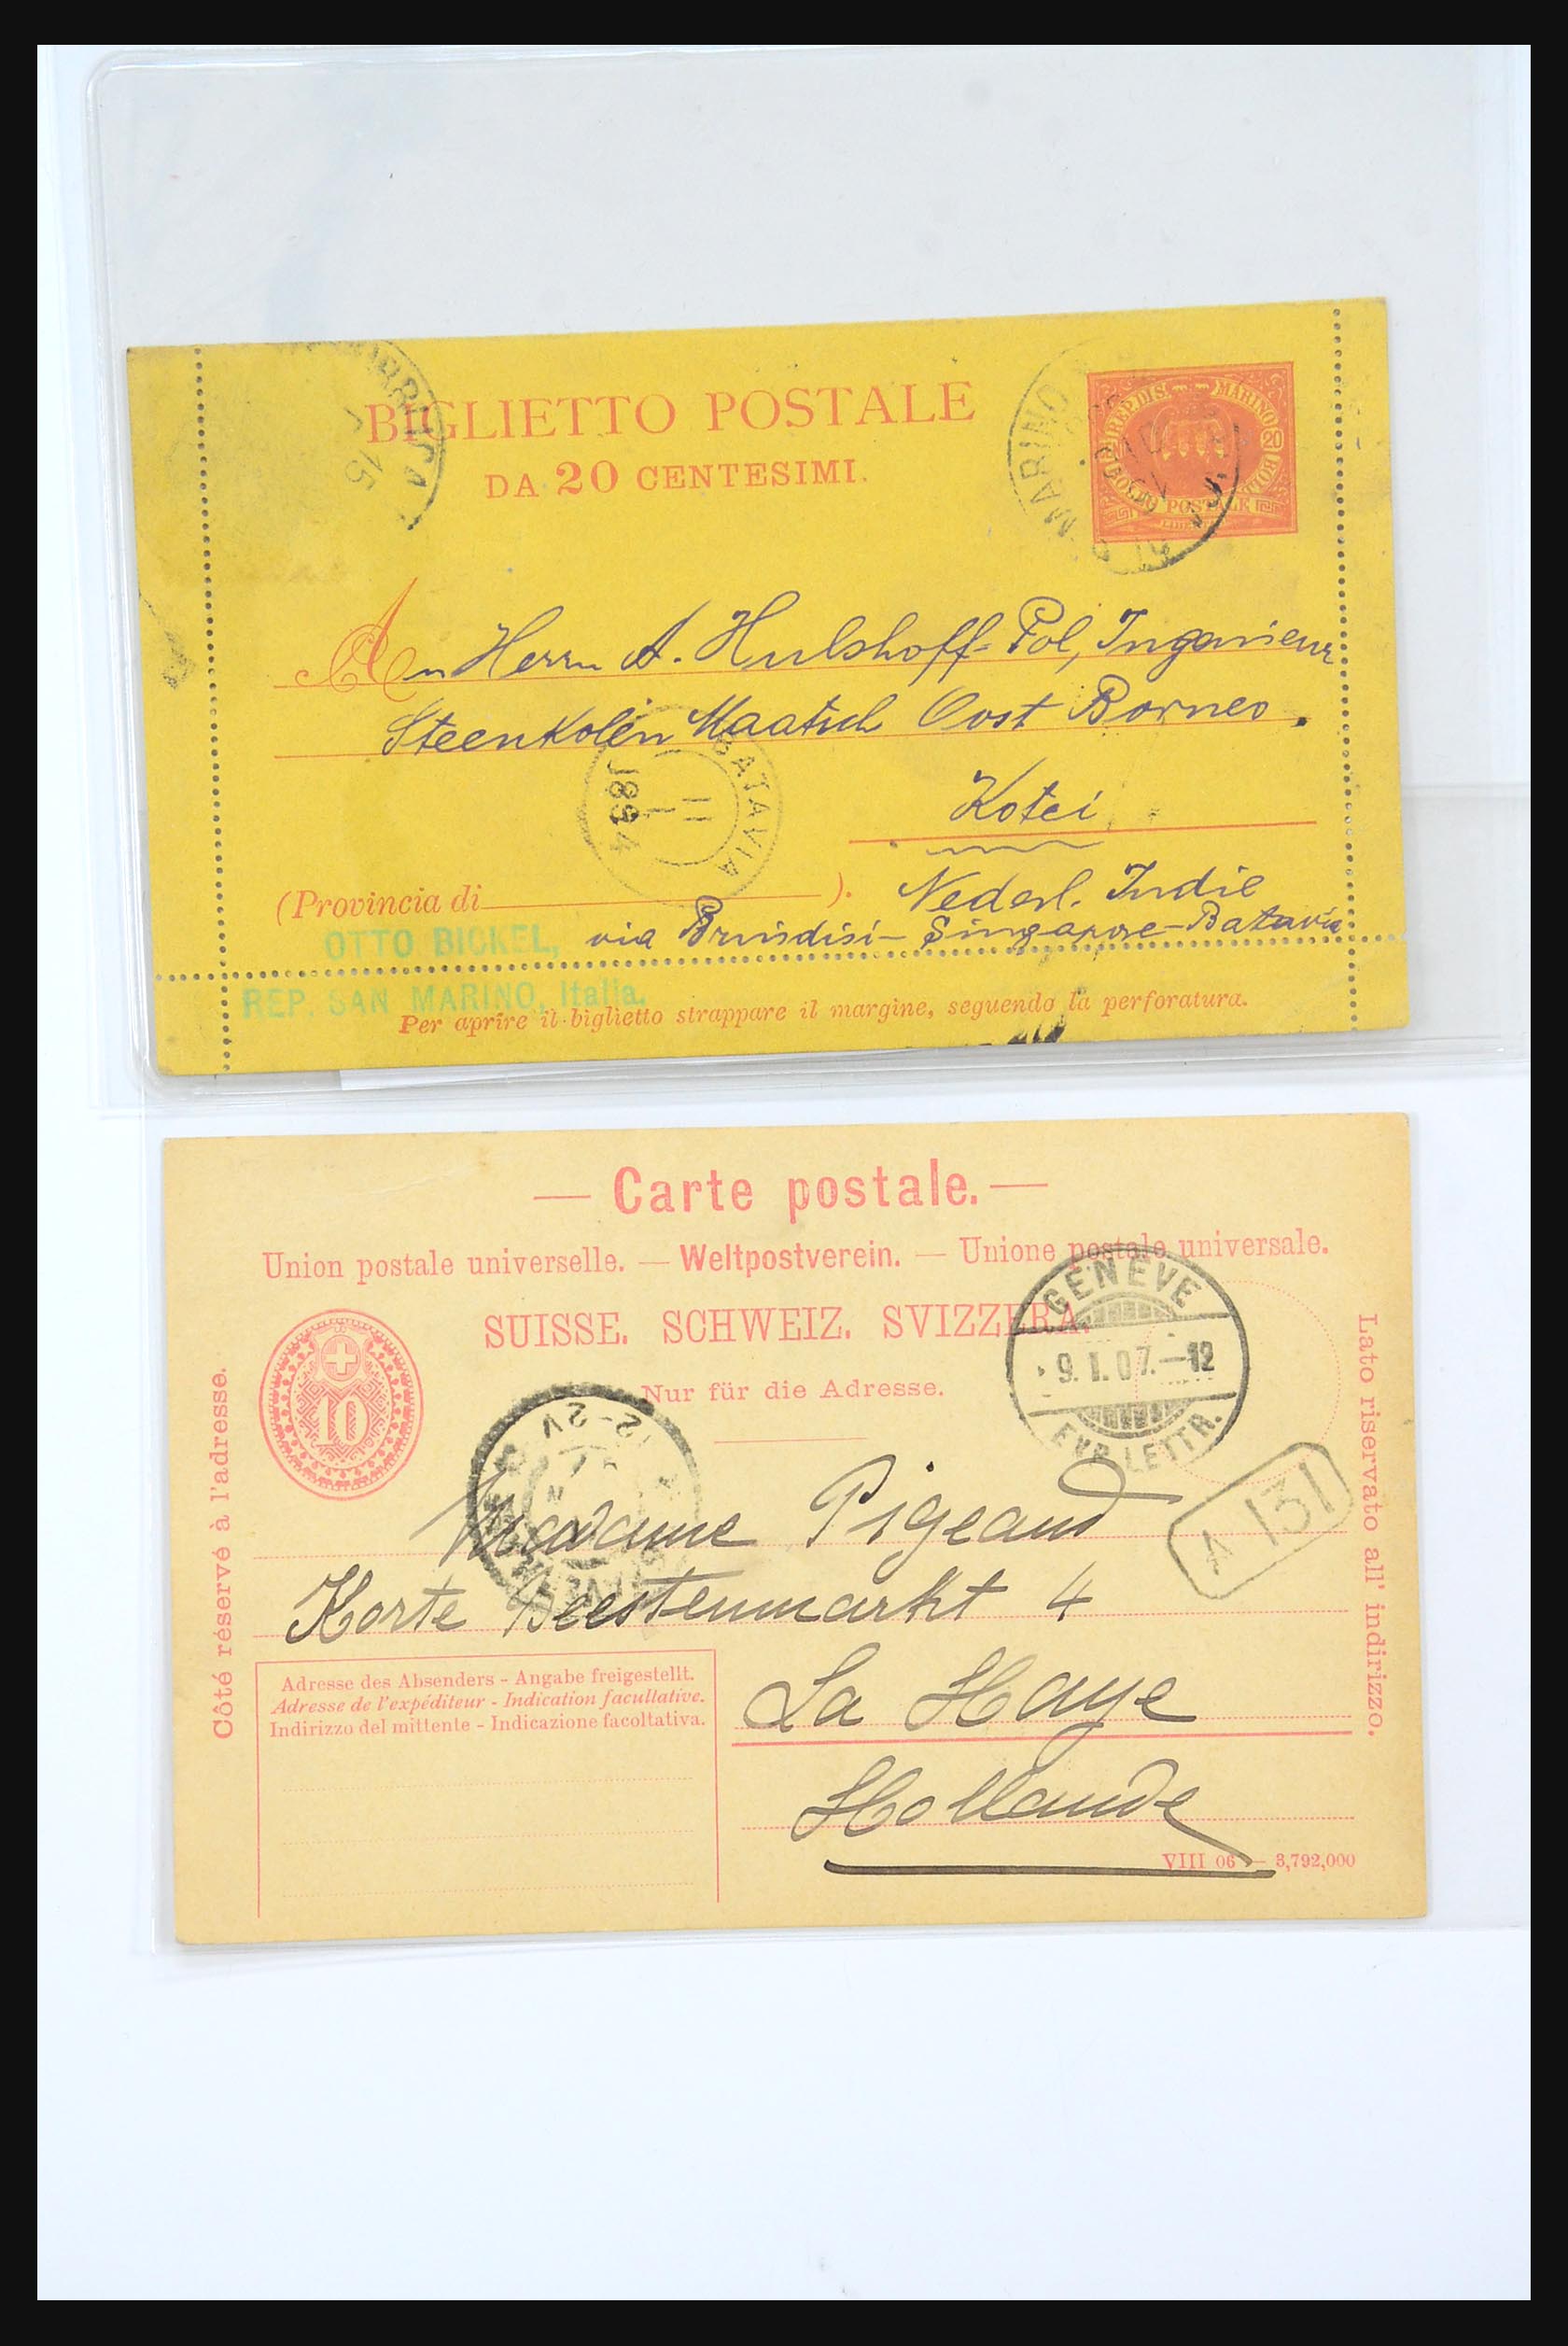 BIGLIETTO POSTALE
DA 20 CENTESIMI.
15
MARINO
REP. DI S. MARINO
20
POSTALE
An Herrn A. Hulshoff-Pol, Ingenieur
Steenkolen Maatsch Oost Borneo.
Kotei
BATAVIA
11
1
1894
(Provincia di ).
Nederl. Indië
via Brindisi-Singapore-Batavia
OTTO BICKEL,
REP. SAN MARINO, Italia.
Per aprire il biglietto strappare il margine, seguendo la perforatura.
— Carte postale. —
Union postale universelle. — Weltpostverein. — Unione postale universale.
SUISSE. SCHWEIZ. SVIZZERA.
Nur für die Adresse.
10
GENÈVE
9. I. 07.–12
EXP. LETTR.
Côté réservé à l'adresse.
Lato riservato all' indirizzo.
12-2V
A 131
Madame Pigeaud
Korte Beestenmarkt 4
La Haye
Hollande
Adresse des Absenders - Angabe freigestellt.
Adresse de l'expéditeur - Indication facultative.
Indirizzo del mittente - Indicazione facoltativa.
VIII 06 — 3,792,000